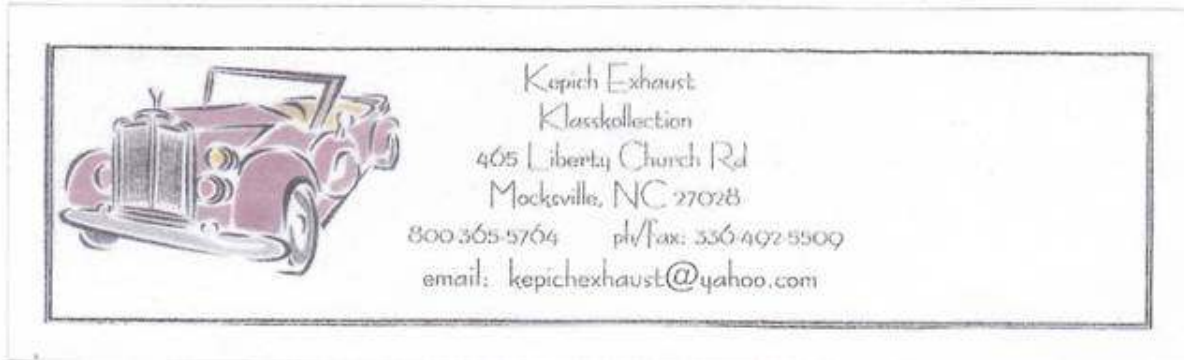 Kepich Exhaust
Klasskollection
465 Liberty Church Rd
Mocksville, NC 27028
800-365-5764 ph/fax: 336-492-5509
email: kepichexhaust@yahoo.com